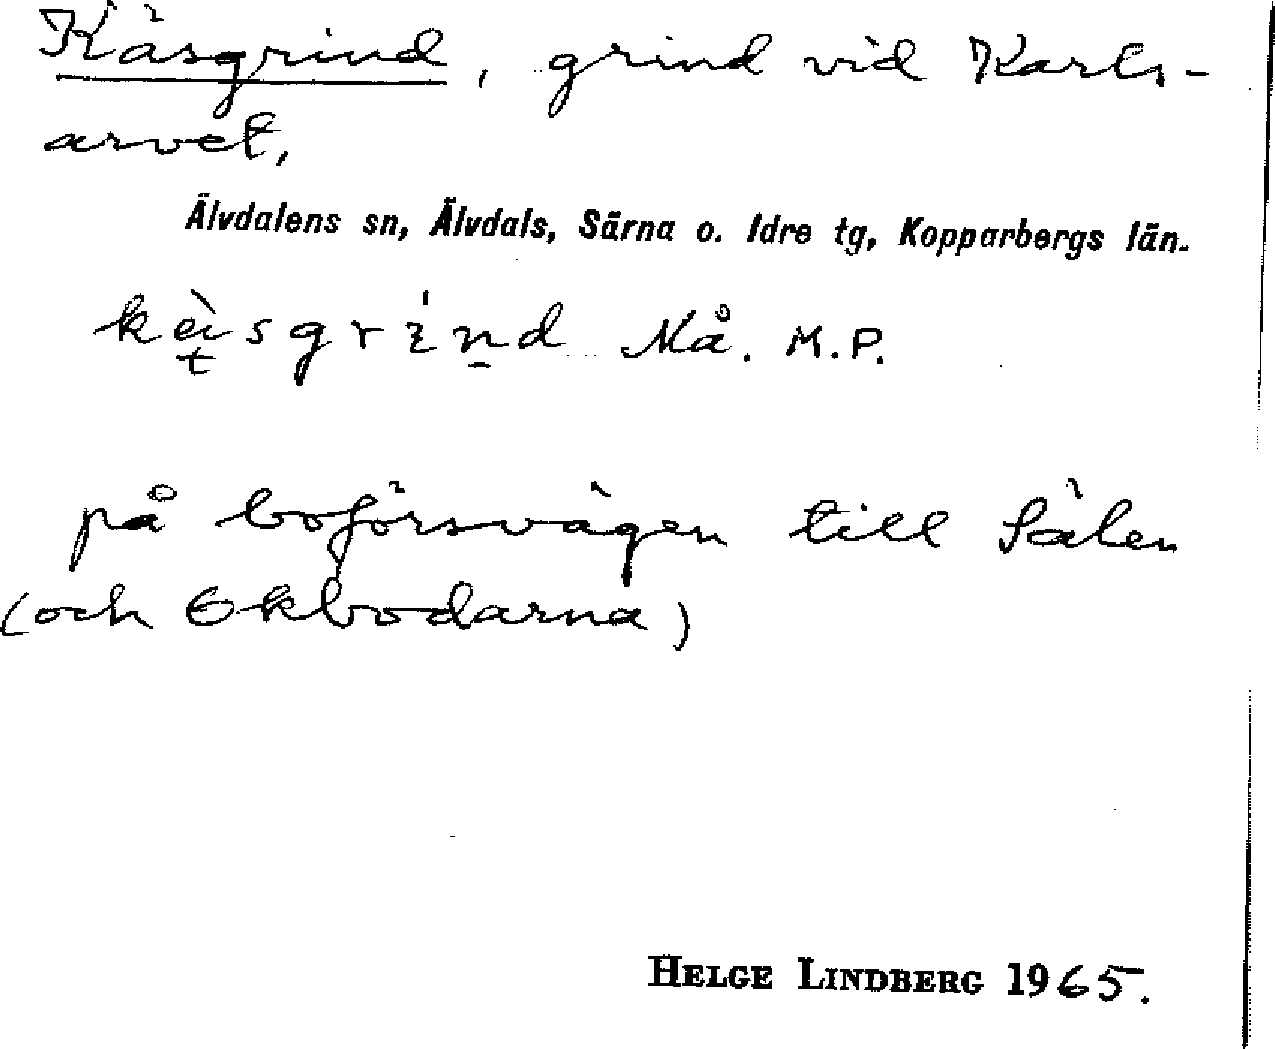 Käsgrind, grind vid Karls-
arvet,
Älvdalens sn, Älvdals, Särna o. Idre tg, Kopparbergs län.
kèisgrínd Må. M.P.
på boförsvägen till Sälen
(och Ekbodarna)
HELGE LINDBERG 1965.